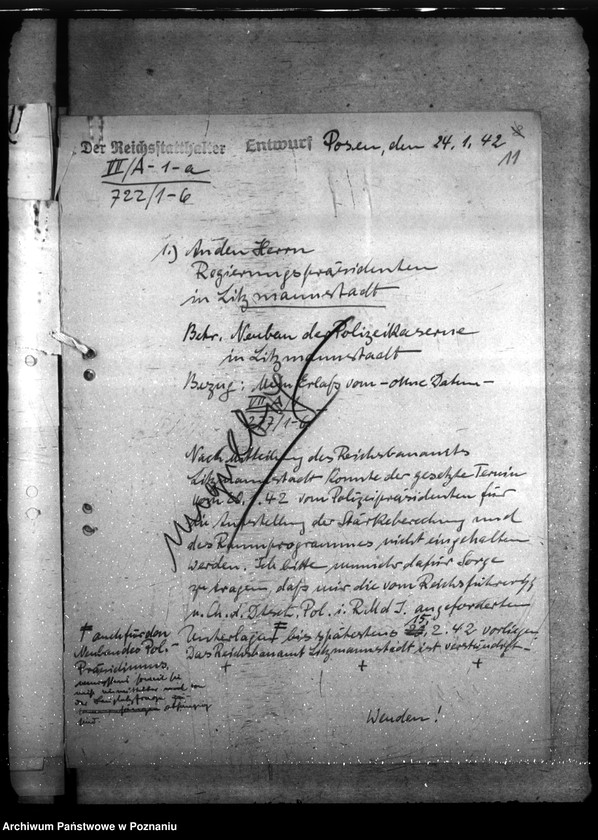 Der Reichsstatthalter Entwurf Posen, den 24.1.42
11
VII/A-1-a
722/1-6
1.) An den Herrn
Regierungspräsidenten
in Litzmannstadt
Betr. Neubau der Polizeikaserne
in Litzmannstadt
Bezug: Mein Erlaß vom - ohne Datum -
VII/A/1
277/1-6
Nach Mitteilung des Reichsbauamts
Litzmannstadt konnte der gesetzte Termin
vom 20.1.42 vom Polizeipräsidenten für
die Aufstellung der Stärkeberechnung und
des Raumprogrammes nicht eingehalten
werden. Ich bitte nunmehr dafür Sorge
zu tragen, daß mir die vom Reichsführer SS
u. Ch. d. Dtsch. Pol. i. R. M. d. I. angeforderten
Unterlagen bis spätestens 15.2.42 vorliegen.
Das Reichsbauamt Litzmannstadt ist verständigt.
+ + +
Wenden!
auch für den
Neubau des Pol.-
Präsidiums,
soweit
der Bauplatzfrage
abhängig
sind
Archiwum Państwowe w Poznaniu